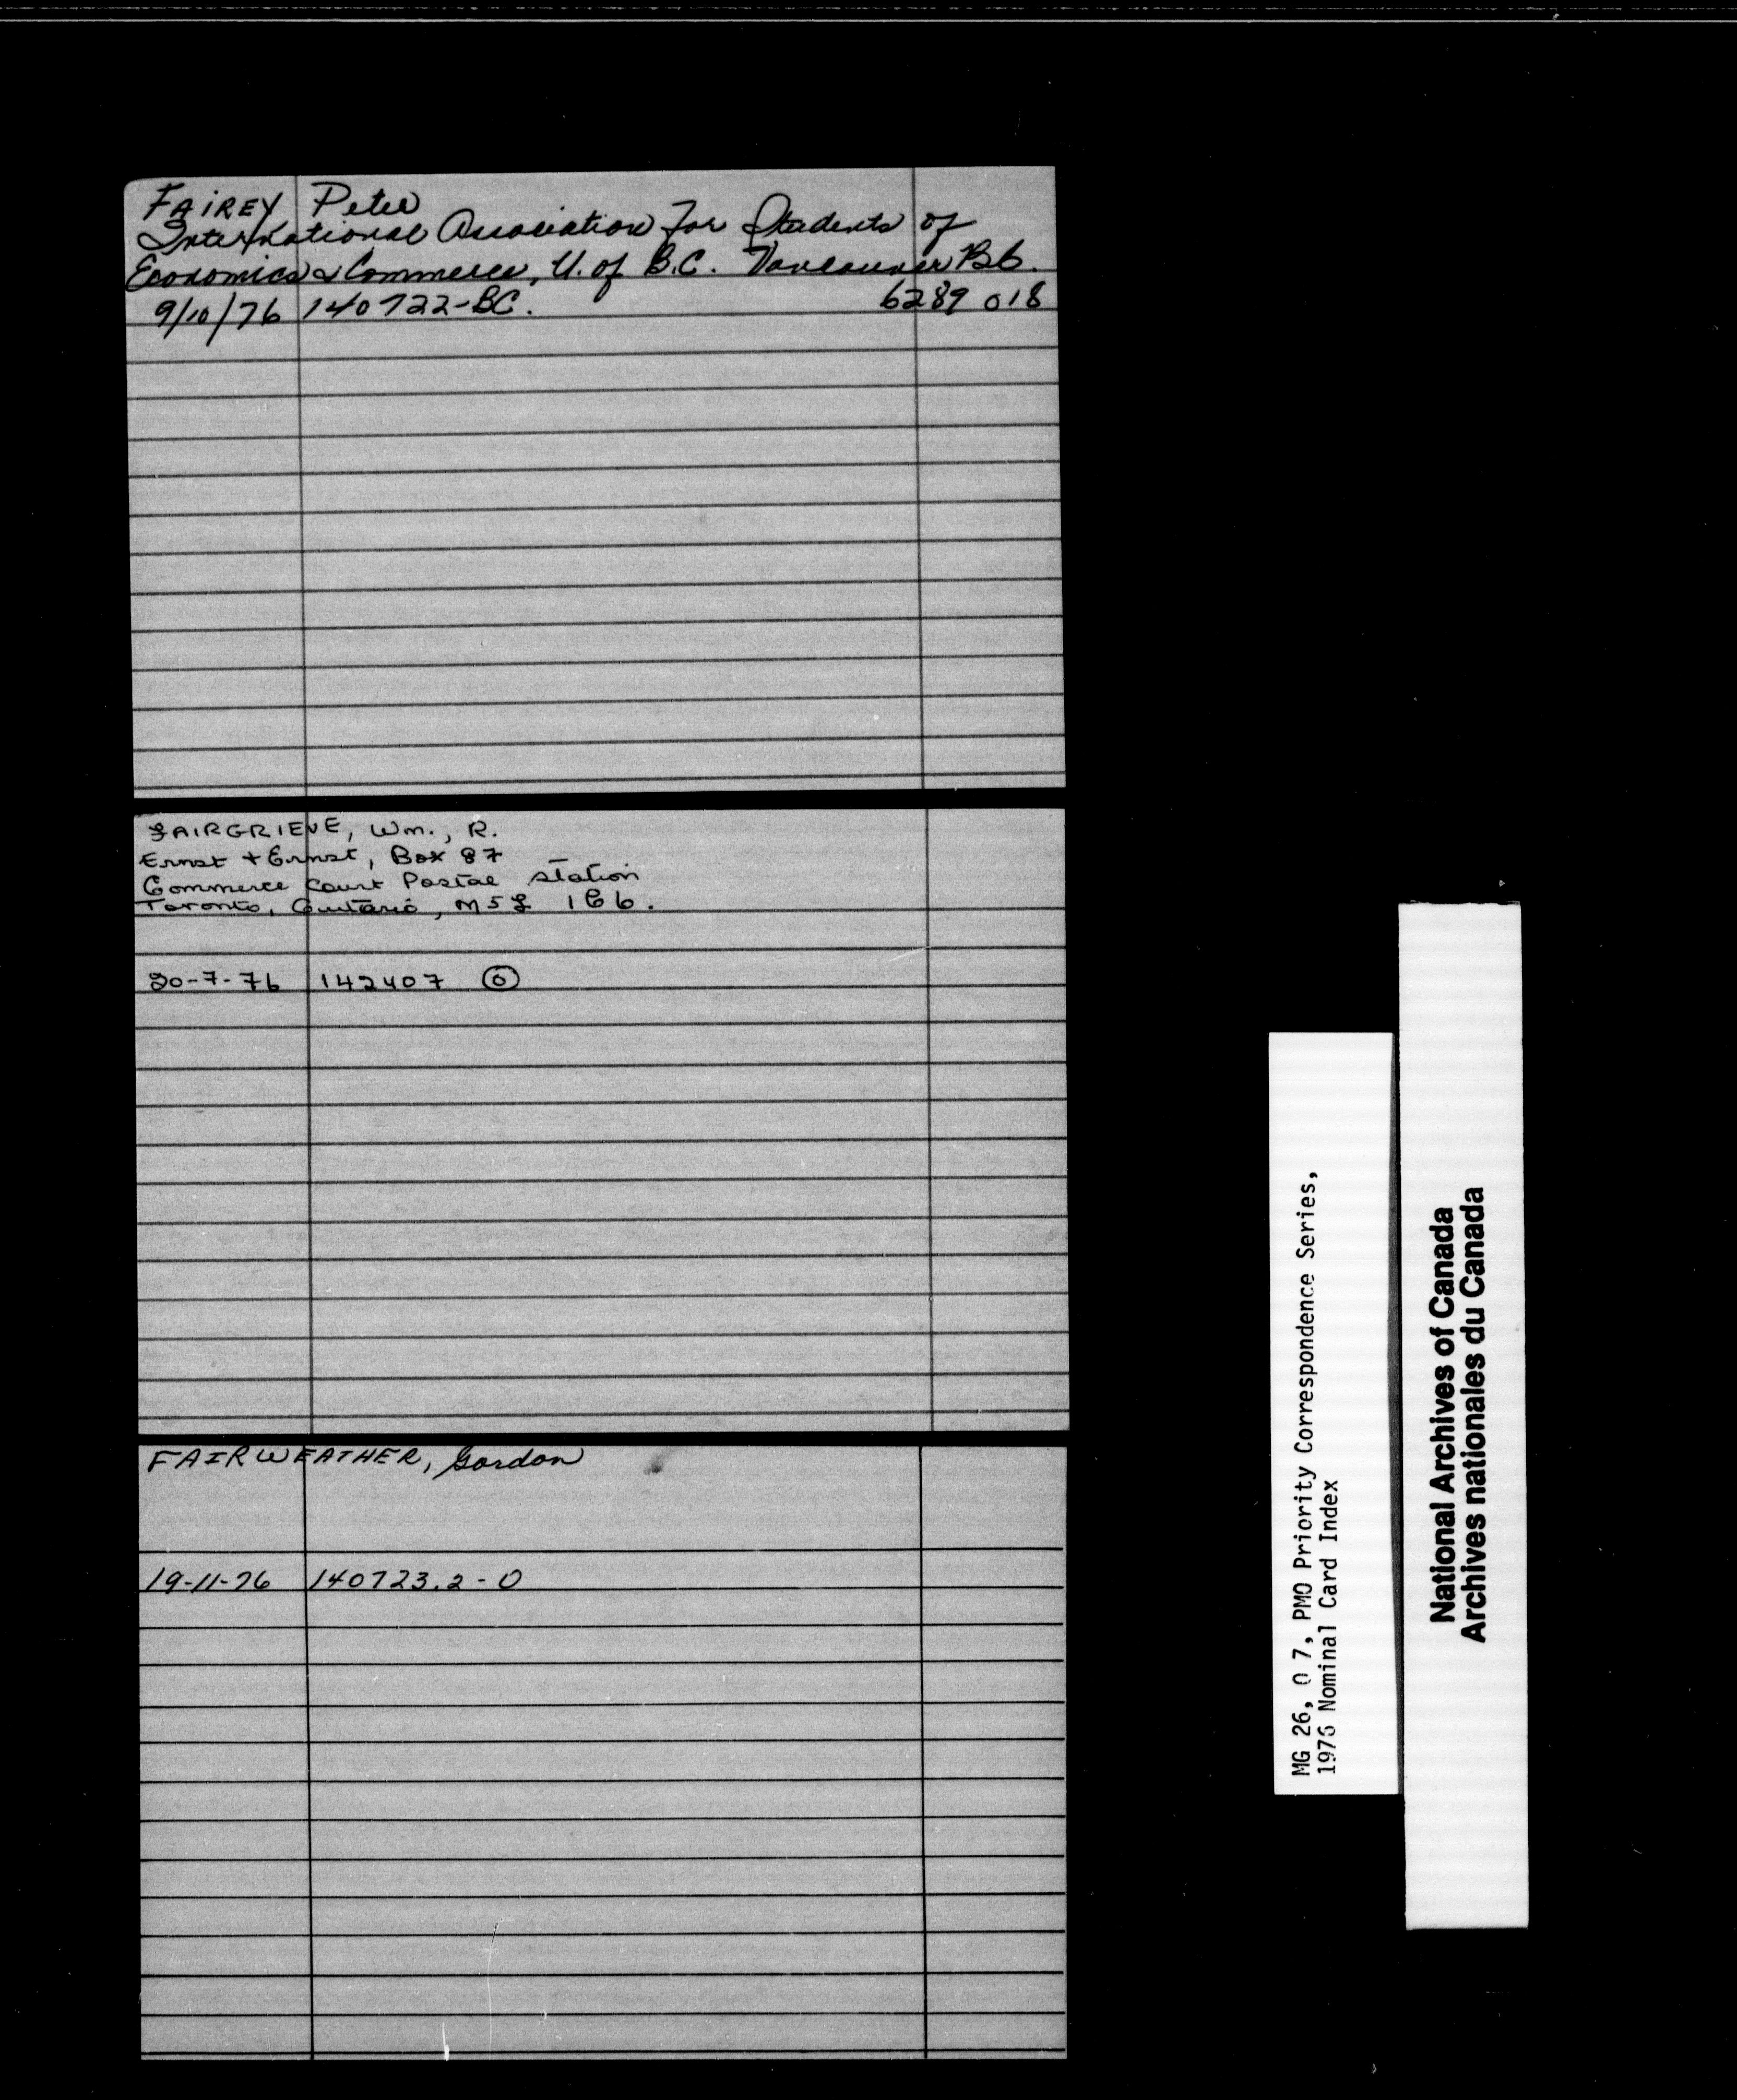 FAIREY Peter
International Association for Students of
Economics & Commerce, U. of B.C. Vancouver BC.
9/10/76 140722-BC. 6289 018
FAIRGRIEVE, Wm., R.
Ernst + Ernst, Box 87
Commerce Court Postal Station
Toronto, Ontario, M5L 1B6.
20-7-76 142407 O
FAIRWEATHER, Gordon
19-11-76 140723.2-O
MG 26, O 7, PMO Priority Correspondence Series,
1976 Nominal Card Index
National Archives of Canada
Archives nationales du Canada